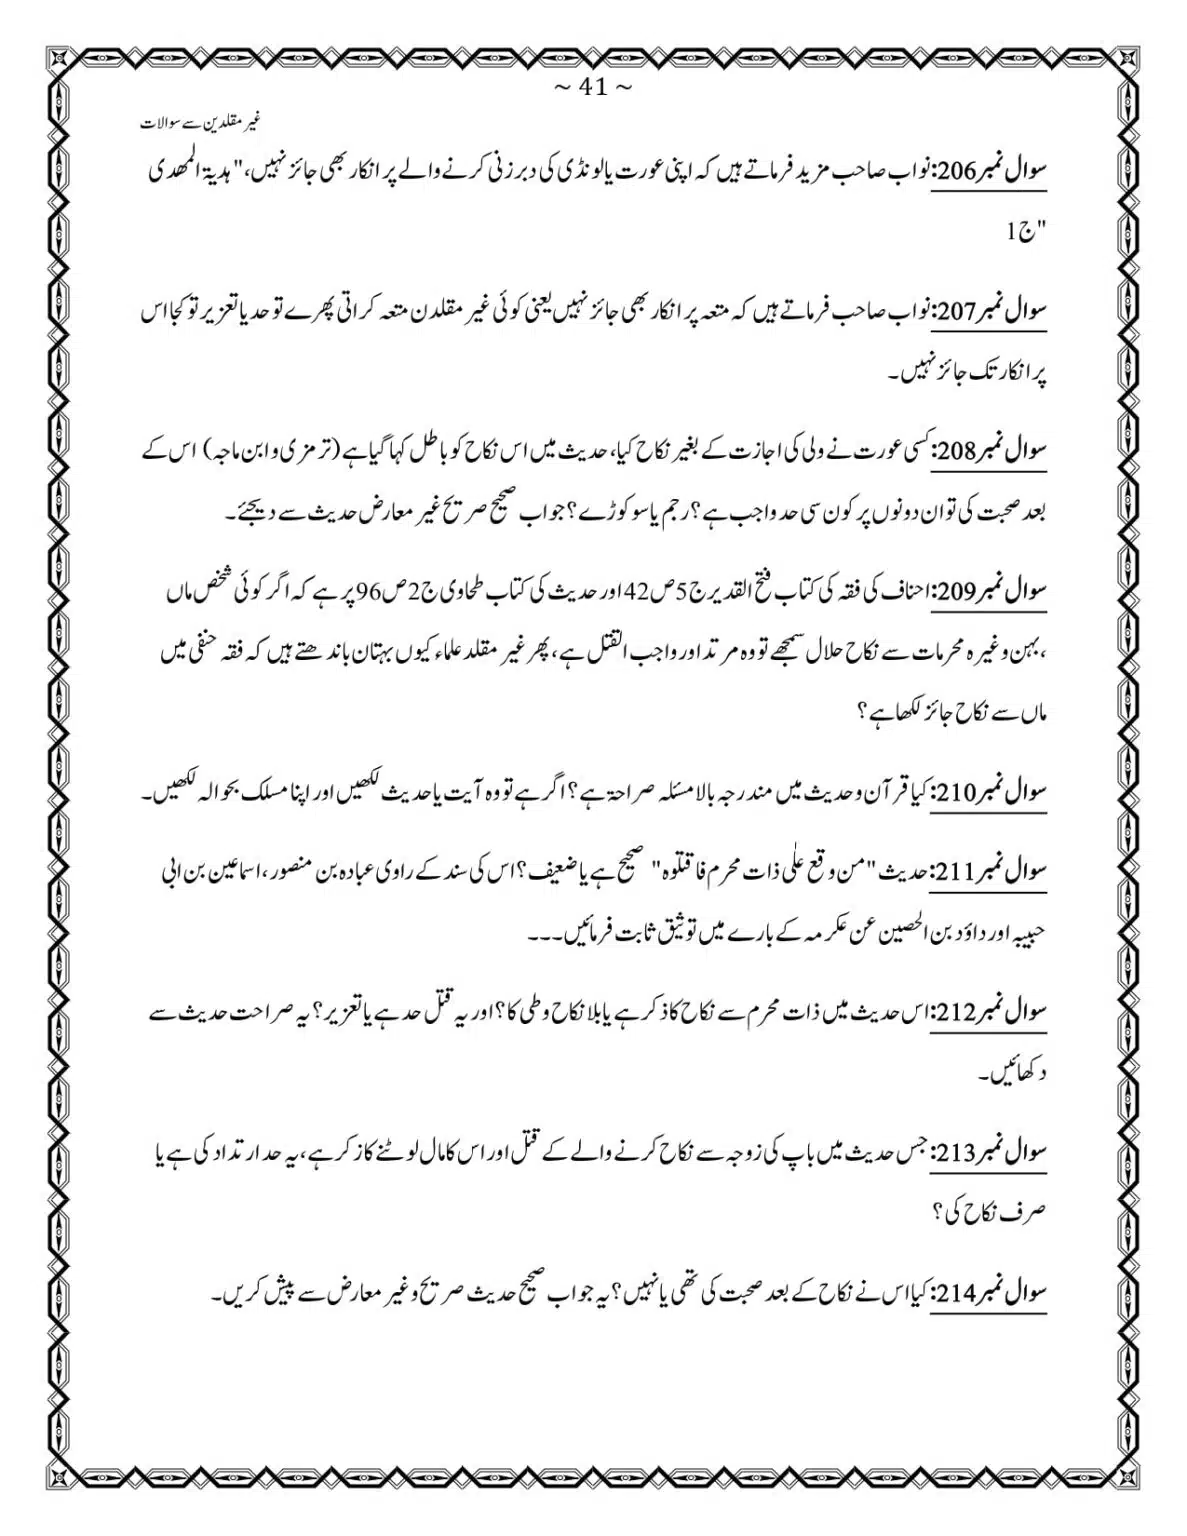 ~ 41 ~
غیر مقلدین سے سوالات
سوال نمبر206:نواب صاحب مزید فرماتے ہیں کہ اپنی عورت یا لونڈی کی دبر زنی کرنے والے پر انکار بھی جائز نہیں،"ہدیۃ المھدی
"ج1
سوال نمبر207:نواب صاحب فرماتے ہیں کہ متعہ پر انکار بھی جائز نہیں یعنی کوئی غیر مقلدن متعہ کراتی پھرے تو حد یا تعزیر تو کجا اس
پر انکار تک جائز نہیں۔
سوال نمبر208:کسی عورت نے ولی کی اجازت کے بغیر نکاح کیا،حدیث میں اس نکاح کو باطل کہا گیا ہے(ترمزی و ابن ماجہ) اس کے
بعد صحبت کی تو ان دونوں پر کون سی حد واجب ہے؟رجم یا سو کوڑے؟جواب صحیح صریح غیر معارض حدیث سے دیجئے۔
سوال نمبر209:احناف کی فقہ کی کتاب فتح القدیر ج5ص42اور حدیث کی کتاب طحاوی ج2ص96پر ہے کہ اگر کوئی شخص ماں
،بہن وغیرہ محرمات سے نکاح حلال سمجھے تو وہ مرتد اور واجب القتل ہے،پھر غیر مقلد علماء کیوں بہتان باندھتے ہیں کہ فقہ حنفی میں
ماں سے نکاح جائز لکھا ہے؟
سوال نمبر210:کیا قرآن و حدیث میں مندرجہ بالا مسئلہ صراحۃ ہے؟اگر ہے تو وہ آیت یا حدیث لکھیں اور اپنا مسلک بحوالہ لکھیں۔
سوال نمبر211:حدیث "من وقع علٰی ذات محرم فاقتلوہ" صحیح ہے یا ضعیف؟اس کی سند کے راوی عبادہ بن منصور،اسماعین بن ابی
حبیبہ اور داؤد بن الحصین عن عکرمہ کے بارے میں توثیق ثابت فرمائیں۔۔۔
سوال نمبر212:اس حدیث میں ذات محرم سے نکاح کا ذکر ہے یا بلا نکاح وطی کا؟اور یہ قتل حد ہے یا تعزیر؟یہ صراحت حدیث سے
دکھائیں۔
سوال نمبر213:جس حدیث میں باپ کی زوجہ سے نکاح کرنے والے کے قتل اور اس کا مال لوٹنے کا زکر ہے،یہ حد ارتداد کی ہے یا
صرف نکاح کی؟
سوال نمبر214:کیا اس نے نکاح کے بعد صحبت کی تھی یا نہیں؟یہ جواب صحیح حدیث صریح وغیر معارض سے پیش کریں۔